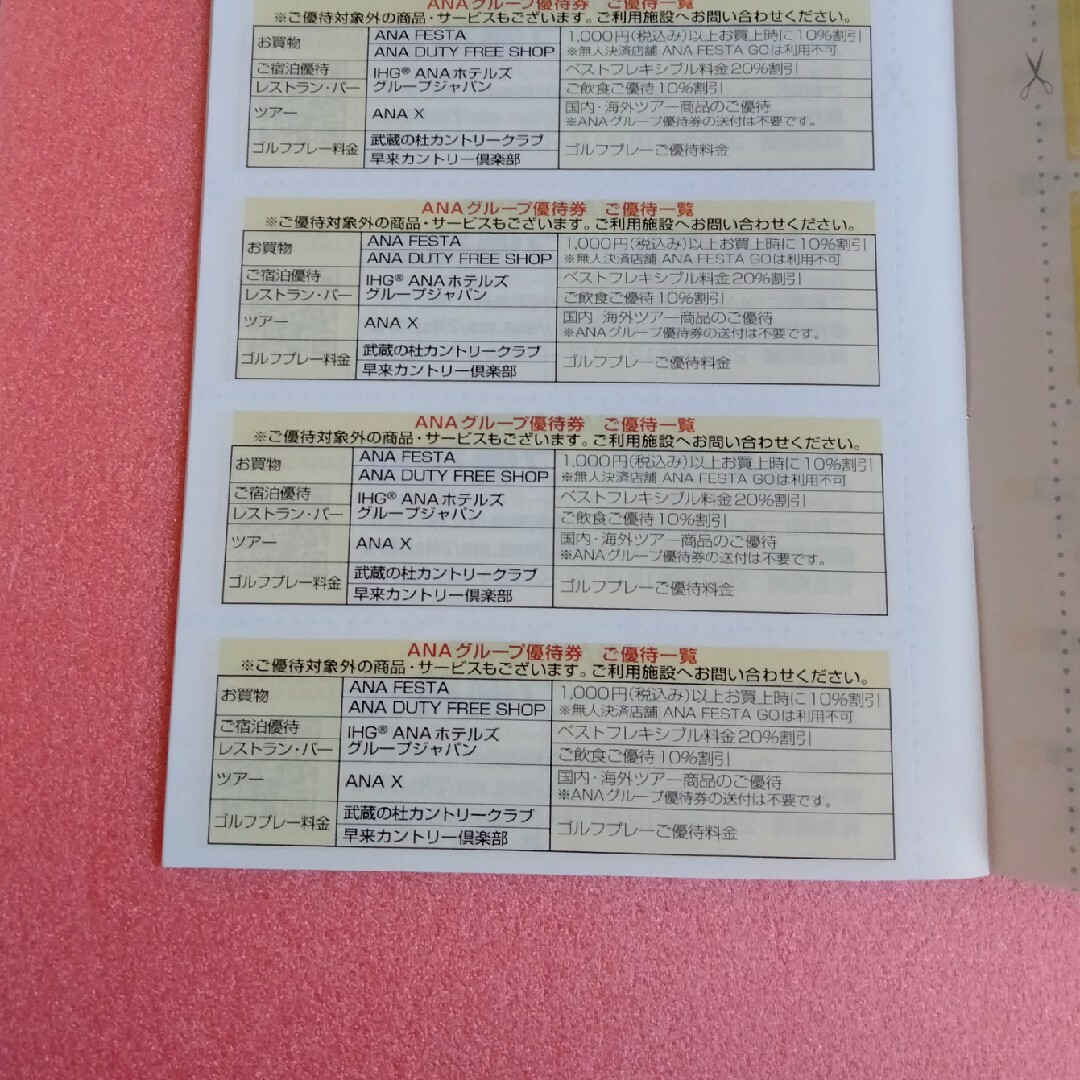 ANAグループ優待券 ご優待一覧
※ご優待対象外の商品・サービスもございます。ご利用施設へお問い合わせください。
お買物
ANA FESTA
ANA DUTY FREE SHOP
1,000円(税込み)以上お買上時に10%割引
※無人決済店舗 ANA FESTA GOは利用不可
ご宿泊優待
レストラン・バー
IHG® ANAホテルズ
グループジャパン
ベストフレキシブル料金20%割引
ご飲食ご優待10%割引
ツアー
ANA X
国内・海外ツアー商品のご優待
※ANAグループ優待券の送付は不要です。
ゴルフプレー料金
武蔵の杜カントリークラブ
早来カントリー倶楽部
ゴルフプレーご優待料金
ANAグループ優待券 ご優待一覧
※ご優待対象外の商品・サービスもございます。ご利用施設へお問い合わせください。
お買物
ANA FESTA
ANA DUTY FREE SHOP
1,000円(税込み)以上お買上時に10%割引
※無人決済店舗 ANA FESTA GOは利用不可
ご宿泊優待
レストラン・バー
IHG® ANAホテルズ
グループジャパン
ベストフレキシブル料金20%割引
ご飲食ご優待10%割引
ツアー
ANA X
国内・海外ツアー商品のご優待
※ANAグループ優待券の送付は不要です。
ゴルフプレー料金
武蔵の杜カントリークラブ
早来カントリー倶楽部
ゴルフプレーご優待料金
ANAグループ優待券 ご優待一覧
※ご優待対象外の商品・サービスもございます。ご利用施設へお問い合わせください。
お買物
ANA FESTA
ANA DUTY FREE SHOP
1,000円(税込み)以上お買上時に10%割引
※無人決済店舗 ANA FESTA GOは利用不可
ご宿泊優待
レストラン・バー
IHG® ANAホテルズ
グループジャパン
ベストフレキシブル料金20%割引
ご飲食ご優待10%割引
ツアー
ANA X
国内・海外ツアー商品のご優待
※ANAグループ優待券の送付は不要です。
ゴルフプレー料金
武蔵の杜カントリークラブ
早来カントリー倶楽部
ゴルフプレーご優待料金
ANAグループ優待券 ご優待一覧
※ご優待対象外の商品・サービスもございます。ご利用施設へお問い合わせください。
お買物
ANA FESTA
ANA DUTY FREE SHOP
1,000円(税込み)以上お買上時に10%割引
※無人決済店舗 ANA FESTA GOは利用不可
ご宿泊優待
レストラン・バー
IHG® ANAホテルズ
グループジャパン
ベストフレキシブル料金20%割引
ご飲食ご優待10%割引
ツアー
ANA X
国内・海外ツアー商品のご優待
※ANAグループ優待券の送付は不要です。
ゴルフプレー料金
武蔵の杜カントリークラブ
早来カントリー倶楽部
ゴルフプレーご優待料金